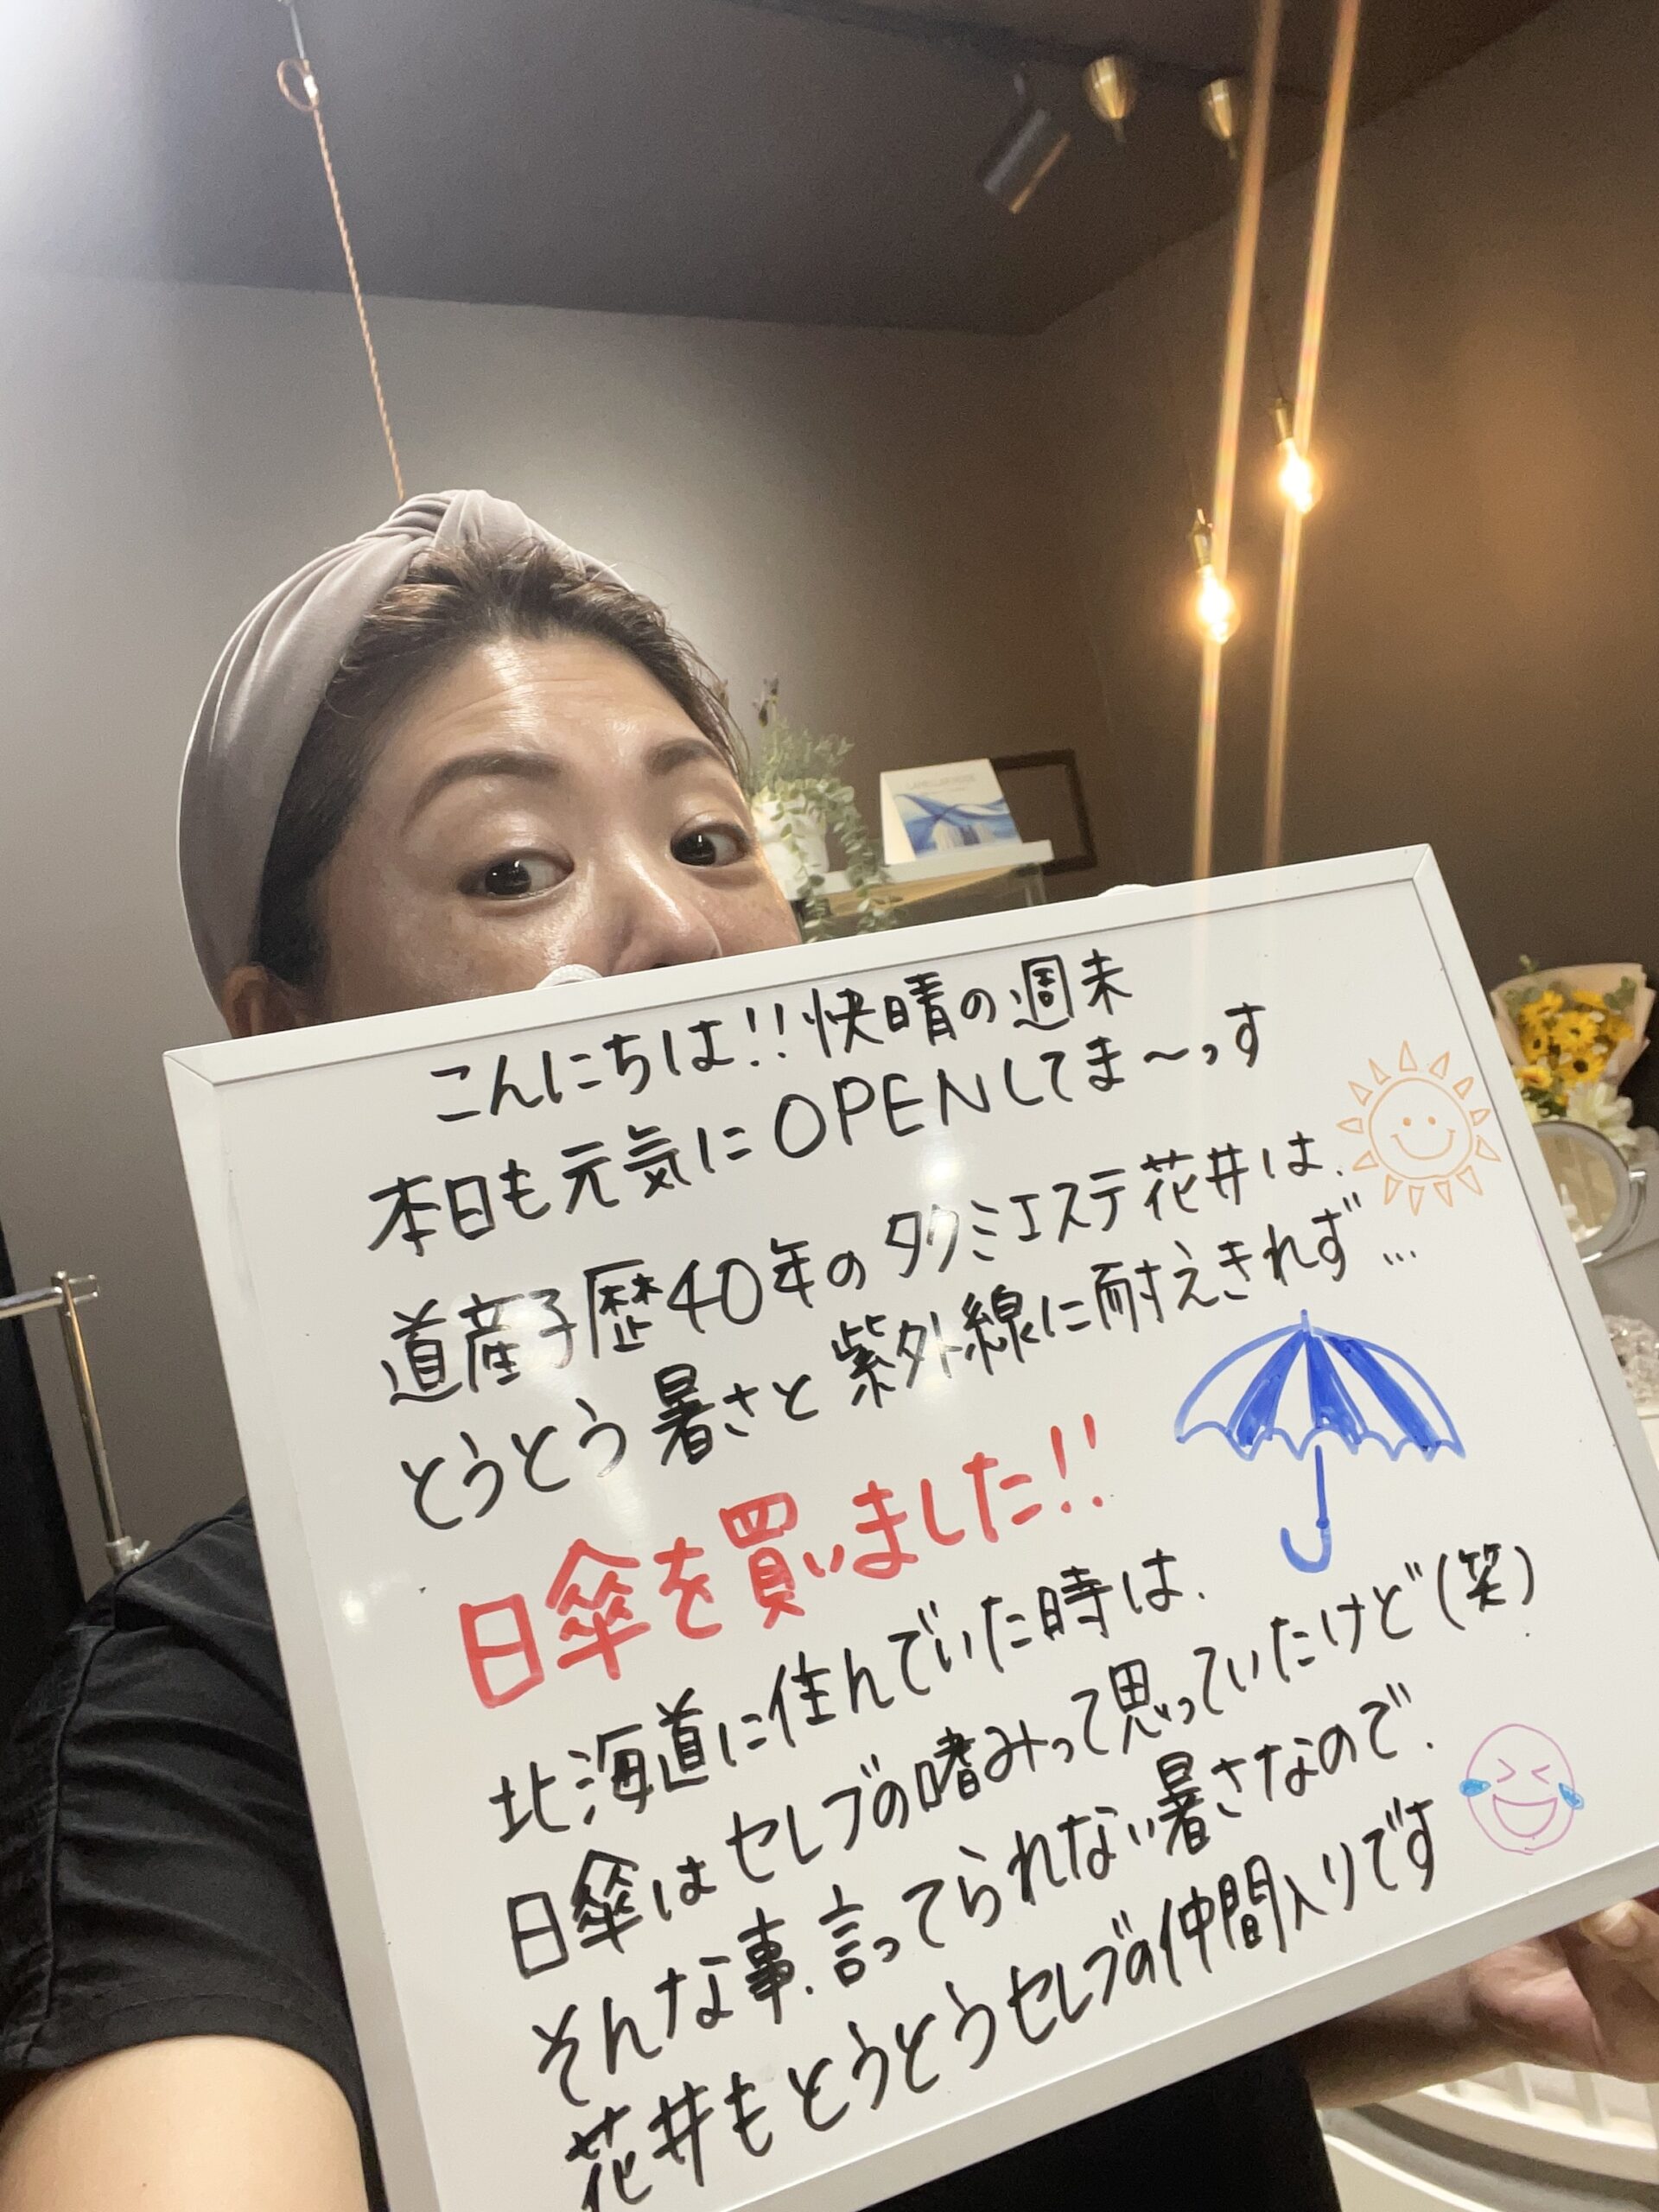 こんにちは!!快晴の週末
本日も元気にOPENしてま〜っす
道産子歴40年のタクミエステ花井は、
とうとう暑さと紫外線に耐えきれず…
日傘を買いました!!
北海道に住んでいた時は、
日傘はセレブの嗜みって思っていたけど(笑)
そんな事、言ってられない暑さなので、
花井もとうとうセレブの仲間入りです